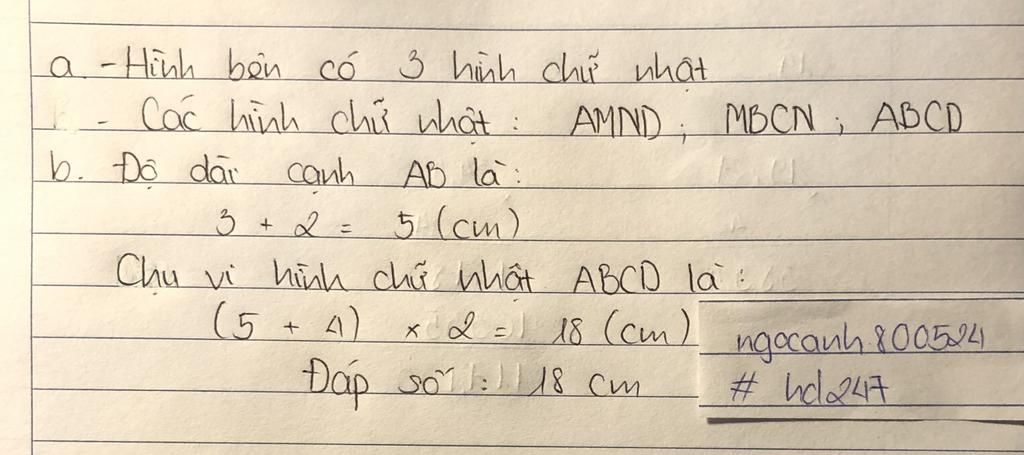 a. - Hình bên có 3 hình chữ nhật
- Các hình chữ nhật : AMND ; MBCN ; ABCD
b. Độ dài cạnh AB là :
3 + 2 = 5 (cm)
Chu vi hình chữ nhật ABCD là :
(5 + 4) × 2 = 18 (cm)
Đáp số : 18 cm
ngocanh800524
# hd247